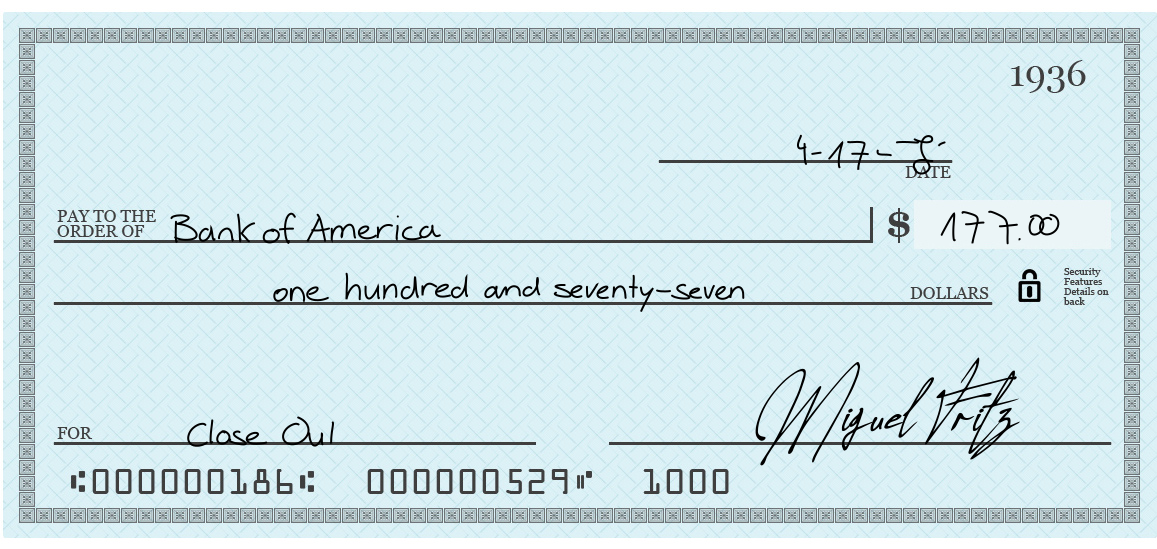 1936
4-17-
DATE
PAY TO THE
ORDER OF Bank of America $ 177.00
one hundred and seventy-seven DOLLARS
Security
Features
Details on
back
FOR Close Out Miguel Fritz
⑆000000186⑆ 000000529⑈ 1000